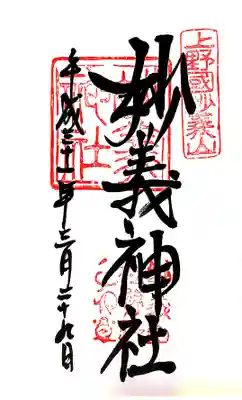 上野國妙義山
妙義神社
平成三十一年三月二十九日